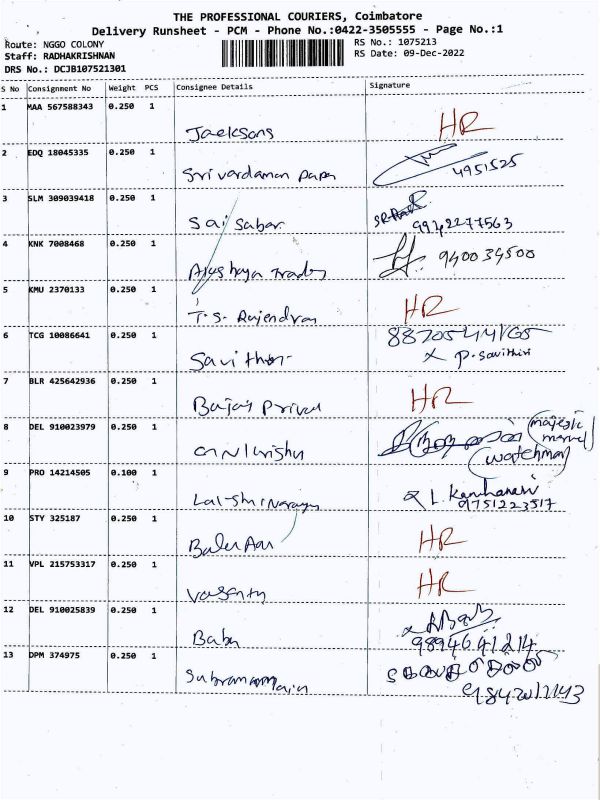 THE PROFESSIONAL COURIERS, Coimbatore
Delivery Runsheet - PCM - Phone No.:0422-3505555 - Page No.:1
Route: NGGO COLONY
RS No.: 1075213
Staff: RADHAKRISHNAN
RS Date: 09-Dec-2022
DRS No.: DCJB107521301
S No Consignment No Weight PCS Consignee Details Signature
1 MAA 567588343 0.250 1
Jaeksons HR
2 EDQ 18045335 0.250 1
Sri vardaman papa 4951525
3 SLM 309039418 0.250 1
Sai Sabar 9942277563
4 KNK 7008468 0.250 1
940034500
5 KMU 2370133 0.250 1
T.S. Rajendran HR
6 TCG 10086641 0.250 1
x P. Savithiri
7 BLR 425642936 0.250 1
Bajaj HR
8 DEL 910023979 0.250 1
majestic
(watchman)
9 PRO 14214505 0.100 1
x L.
9751223517
10 STY 325187 0.250 1
HR
11 VPL 215753317 0.250 1
HR
12 DEL 910025839 0.250 1
Babu 9894641214
13 DPM 374975 0.250 1